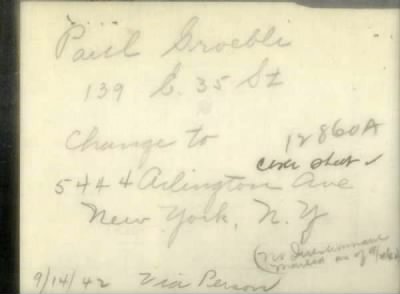 Paul Groebli
139 E. 35 St
Change to
12860A
cover sheet ✓
5444 Arlington Ave
New York, N.Y
(No Questionnaire
mailed as of
9/14/42 Via Person